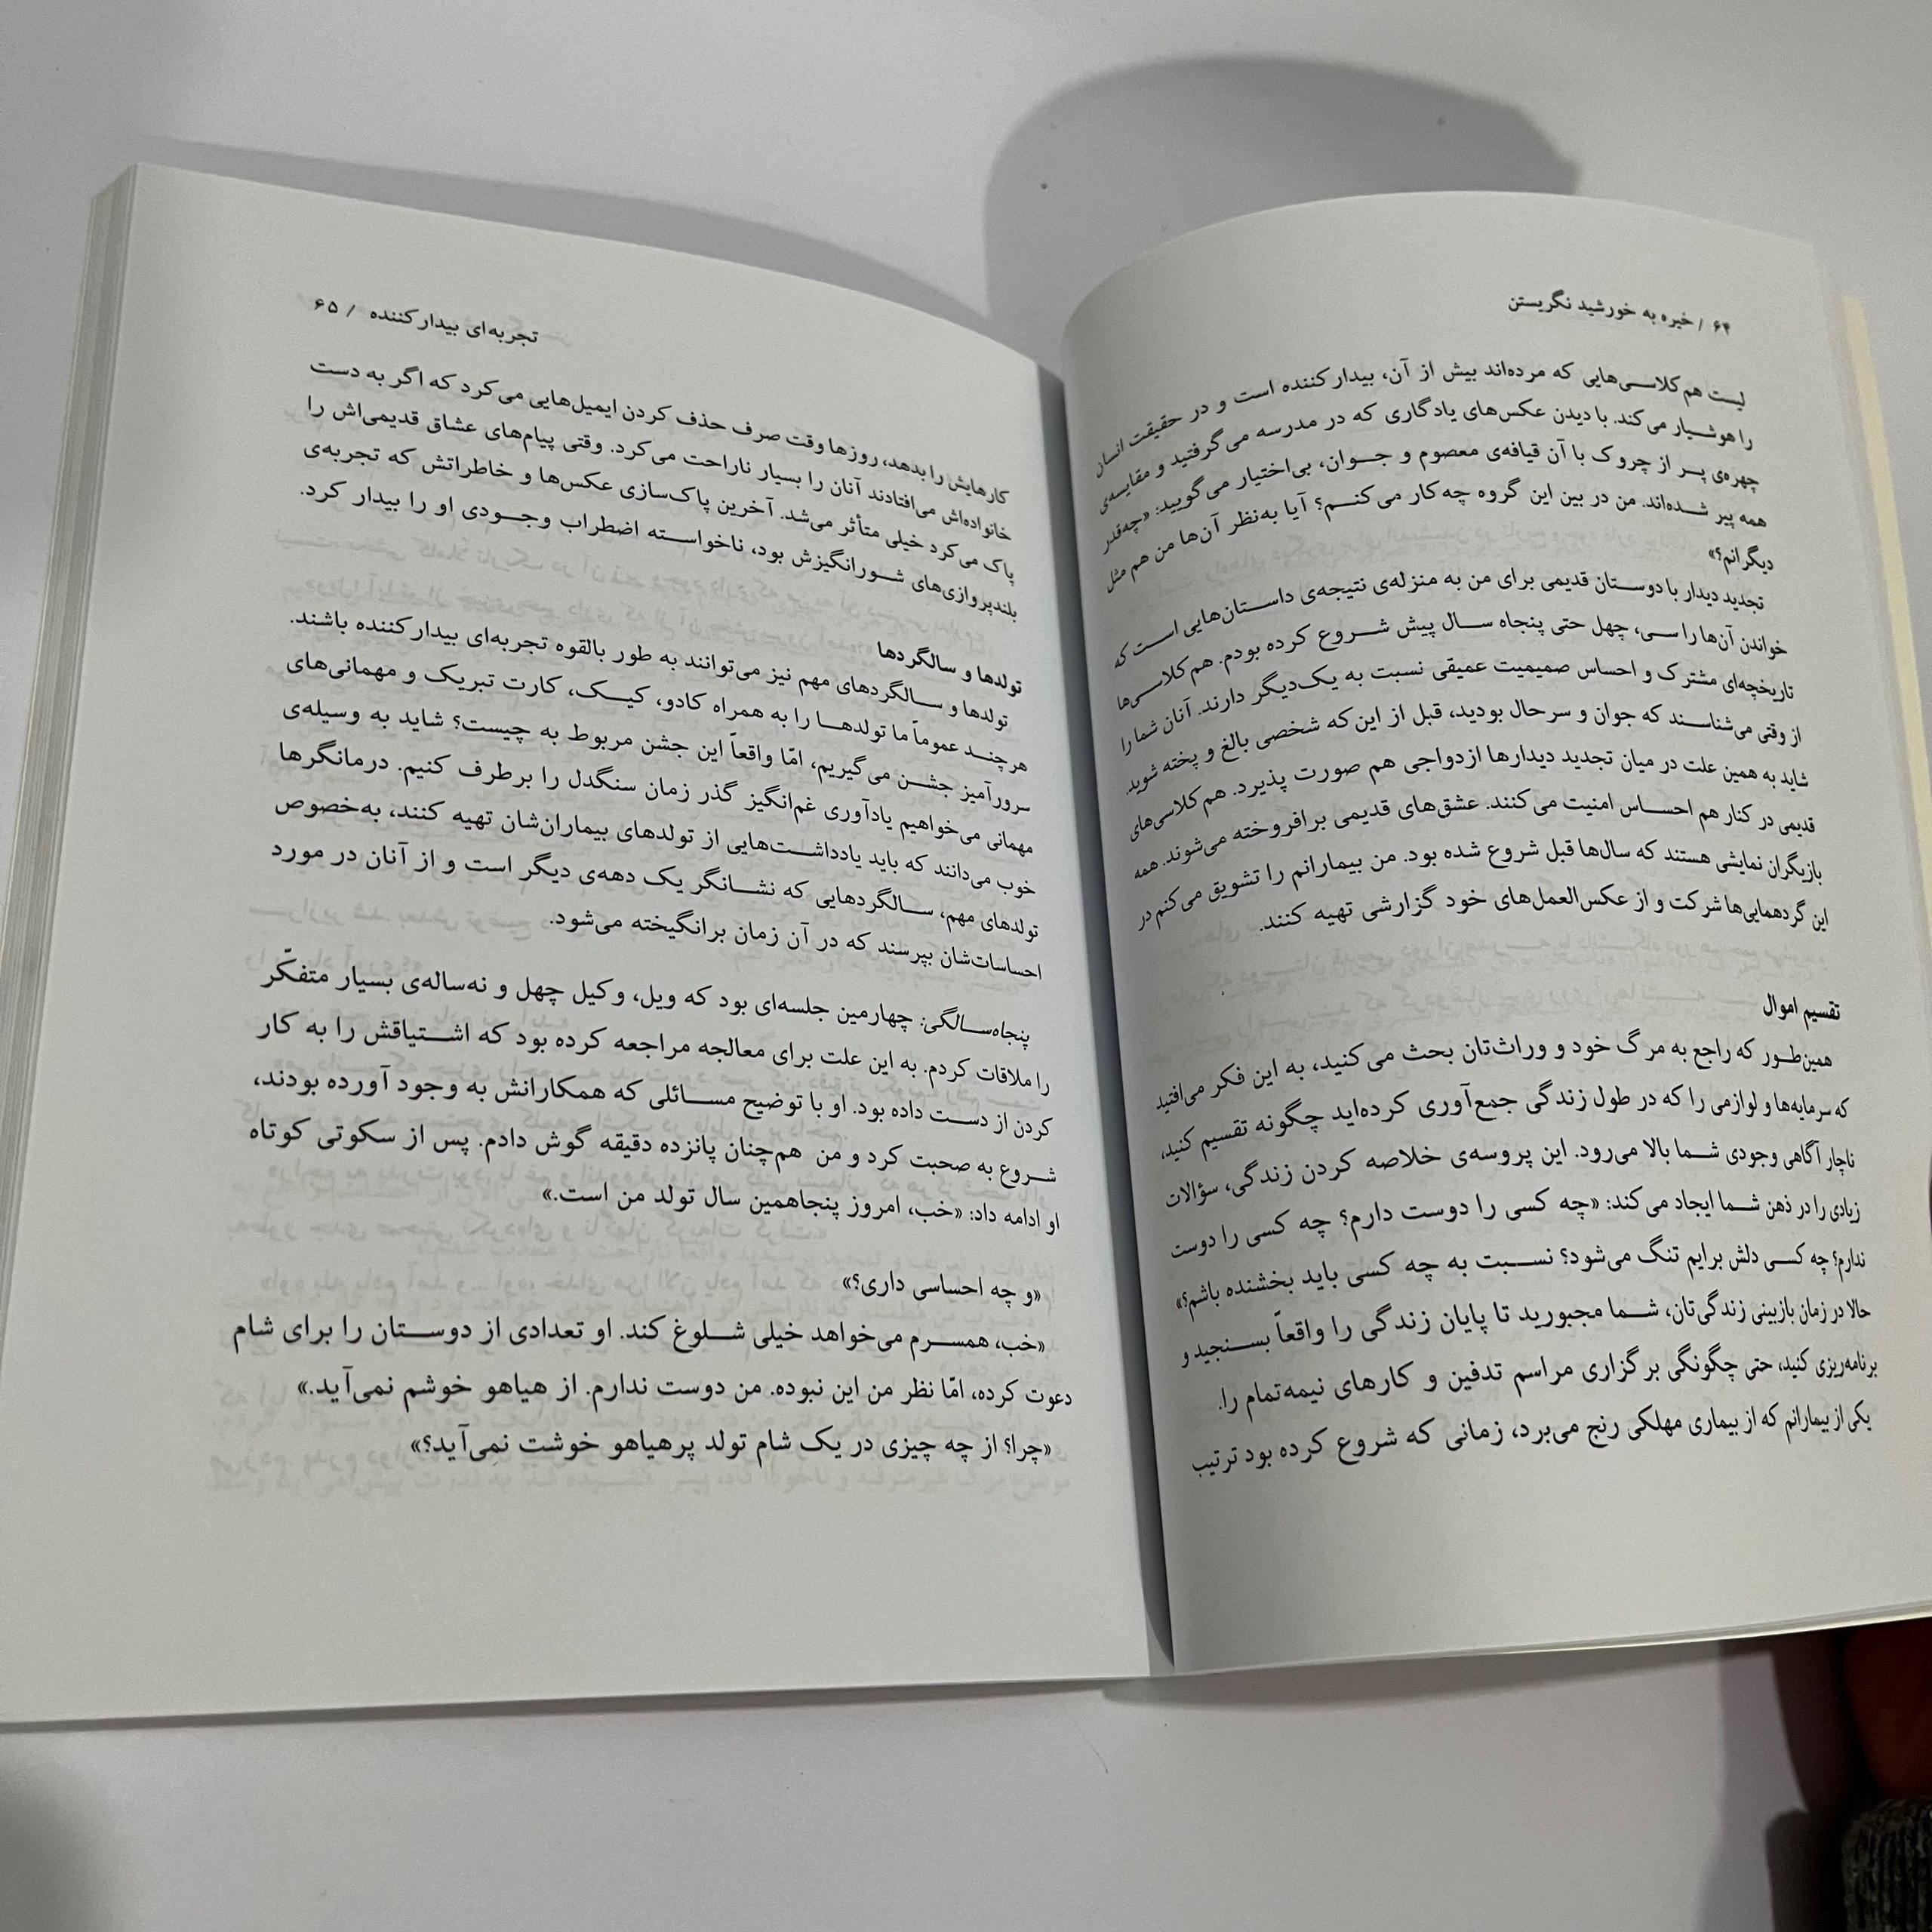 ۶۴ / خیره به خورشید نگریستن
لیست هم‌کلاسی‌هایی که مرده‌اند بیش از آن، بیدارکننده است و در حقیقت انسان
را هوشیار می‌کند. با دیدن عکس‌های یادگاری که در مدرسه می‌گرفتید و مقایسه‌ی
چهره‌ی پر از چروک با آن قیافه‌ی معصوم و جوان، بی‌اختیار می‌گویید: «چه‌قدر
همه پیر شده‌اند. من در بین این گروه چه‌کار می‌کنم؟ آیا به‌نظر آن‌ها من هم مثل
دیگرانم؟»
تجدید دیدار با دوستان قدیمی برای من به منزله‌ی نتیجه‌ی داستان‌هایی است که
خواندن آن‌ها را سی، چهل حتی پنجاه سال پیش شروع کرده بودم. هم‌کلاسی‌ها
تاریخچه‌ای مشترک و احساس صمیمیت عمیقی نسبت به یک‌دیگر دارند. آنان شما را
از وقتی می‌شناسند که جوان و سرحال بودید، قبل از این‌که شخصی بالغ و پخته شوید.
شاید به همین علت در میان تجدید دیدارها ازدواجی هم صورت پذیرد. هم‌کلاسی‌های
قدیمی در کنار هم احساس امنیت می‌کنند. عشق‌های قدیمی برافروخته می‌شوند. همه
بازیگران نمایشی هستند که سال‌ها قبل شروع شده بود. من بیمارانم را تشویق می‌کنم در
این گردهمایی‌ها شرکت و از عکس‌العمل‌های خود گزارشی تهیه کنند.
تقسیم اموال
همین‌طور که راجع به مرگ خود و وراث‌تان بحث می‌کنید، به این فکر می‌افتید
که سرمایه‌ها و لوازمی را که در طول زندگی جمع‌آوری کرده‌اید چگونه تقسیم کنید،
ناچار آگاهی وجودی شما بالا می‌رود. این پروسه‌ی خلاصه کردن زندگی، سؤالات
زیادی را در ذهن شما ایجاد می‌کند: «چه کسی را دوست دارم؟ چه کسی را دوست
ندارم؟ چه کسی دلش برایم تنگ می‌شود؟ نسبت به چه کسی باید بخشنده باشم؟»
حالا در زمان بازبینی زندگی‌تان، شما مجبورید تا پایان زندگی را واقعاً بسنجید و
برنامه‌ریزی کنید، حتی چگونگی برگزاری مراسم تدفین و کارهای نیمه‌تمام را.
یکی از بیمارانم که از بیماری مهلکی رنج می‌برد، زمانی که شروع کرده بود ترتیب
تجربه‌ای بیدارکننده / ۶۵
کارهایش را بدهد، روزها وقت صرف حذف کردن ایمیل‌هایی می‌کرد که اگر به دست
خانواده‌اش می‌افتادند آنان را بسیار ناراحت می‌کرد. وقتی پیام‌های عشاق قدیمی‌اش را
پاک می‌کرد خیلی متأثر می‌شد. آخرین پاک‌سازی عکس‌ها و خاطراتش که تجربه‌ی
بلندپروازی‌های شورانگیزش بود، ناخواسته اضطراب وجودی او را بیدار کرد.
تولدها و سالگردها
تولدها و سالگردهای مهم نیز می‌توانند به طور بالقوه تجربه‌ای بیدارکننده باشند.
هرچند عموماً ما تولدها را به همراه کادو، کیک، کارت تبریک و مهمانی‌های
سرورآمیز جشن می‌گیریم، امّا واقعاً این جشن مربوط به چیست؟ شاید به وسیله‌ی
مهمانی می‌خواهیم یادآوری غم‌انگیز گذر زمان سنگدل را برطرف کنیم. درمانگرها
خوب می‌دانند که باید یادداشت‌هایی از تولدهای بیماران‌شان تهیه کنند، به‌خصوص
تولدهای مهم، سالگردهایی که نشانگر یک دهه‌ی دیگر است و از آنان در مورد
احساسات‌شان بپرسند که در آن زمان برانگیخته می‌شود.
پنجاه‌سالگی: چهارمین جلسه‌ای بود که ویل، وکیل چهل و نه‌ساله‌ی بسیار متفکّر
را ملاقات کردم. به این علت برای معالجه مراجعه کرده بود که اشتیاقش را به کار
کردن از دست داده بود. او با توضیح مسائلی که همکارانش به وجود آورده بودند،
شروع به صحبت کرد و من هم‌چنان پانزده دقیقه گوش دادم. پس از سکوتی کوتاه
او ادامه داد: «خب، امروز پنجاهمین سال تولد من است.»
«و چه احساسی داری؟»
«خب، همسرم می‌خواهد خیلی شلوغ کند. او تعدادی از دوستان را برای شام
دعوت کرده، امّا نظر من این نبوده. من دوست ندارم. از هیاهو خوشم نمی‌آید.»
«چرا؟ از چه چیزی در یک شام تولد پرهیاهو خوشت نمی‌آید؟»